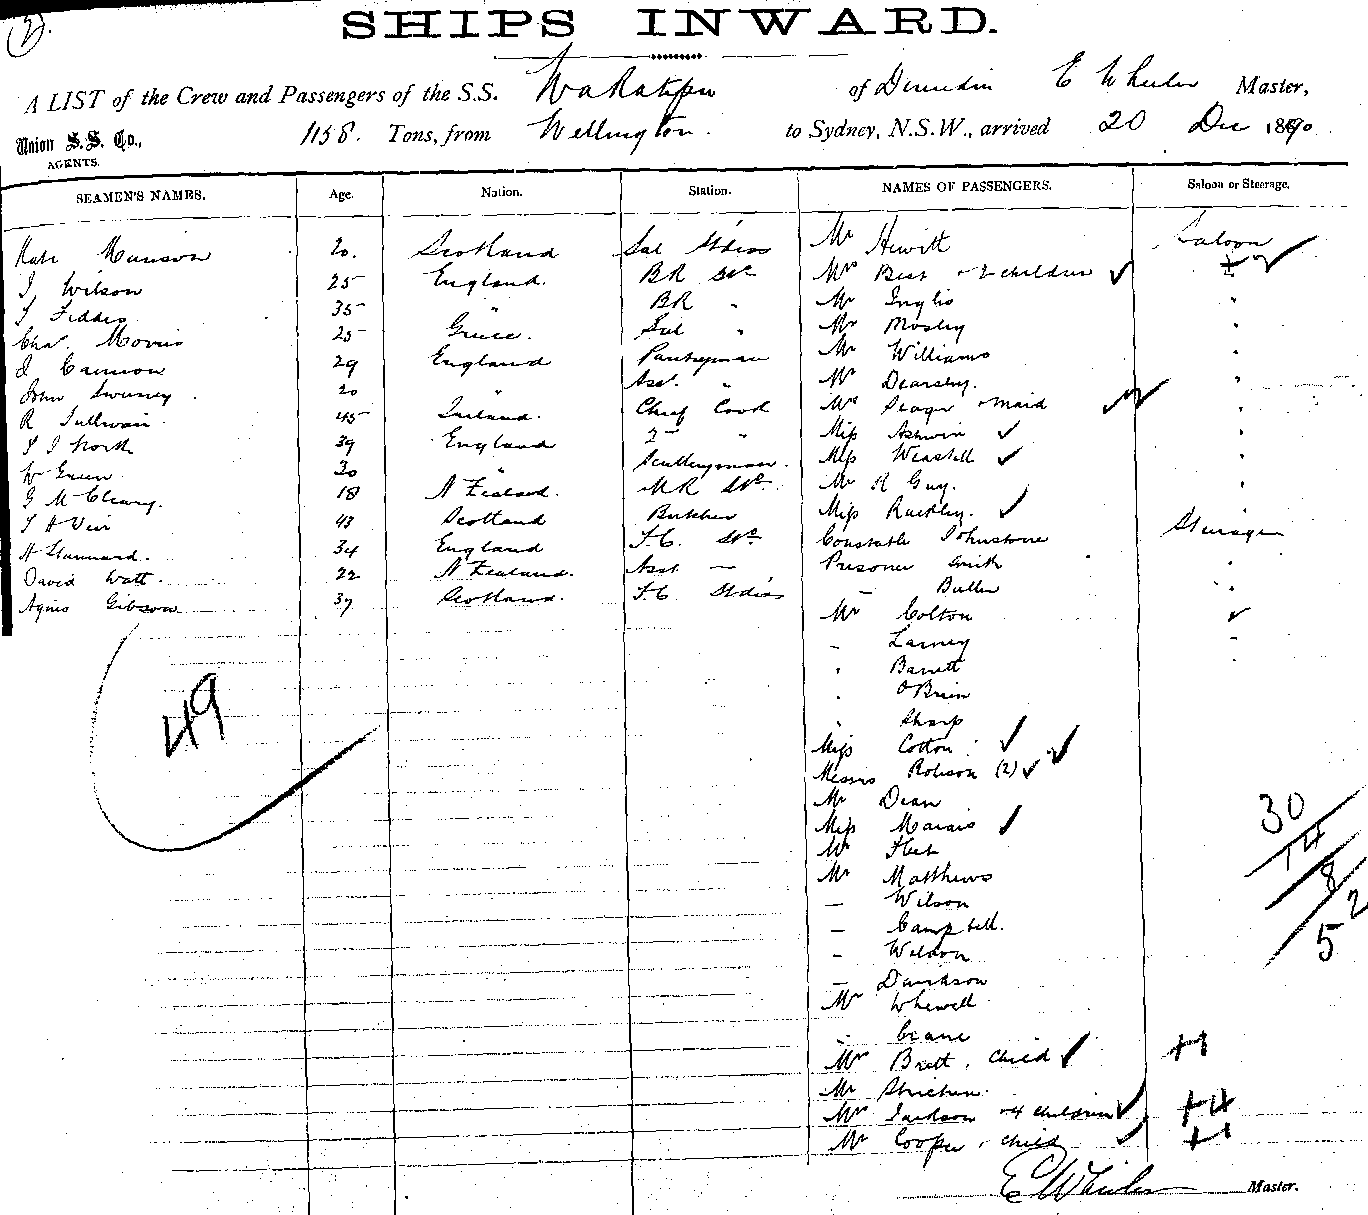 (2).
SHIPS INWARD.
A LIST of the Crew and Passengers of the S.S. Wakatipu of Dunedin E Wheeler Master,
Union S.S. Co., AGENTS. 1158. Tons, from Wellington. to Sydney, N.S.W., arrived 20 Dec 1890
SEAMEN'S NAMES. Age. Nation. Station. NAMES OF PASSENGERS. Saloon or Steerage.
Kate Munson 20. Scotland Sal Stdess Mr Hewitt Saloon
J Wilson 25 England. BR Std. Mrs Best + 2 children ✓ + 2 ✓
J Fiddes 35 " BR " Mr Inglis "
Chas. Morris 25 Greece. Sal " Mr Mosley "
J Cannon 29 England Pantryman Mr Williams "
John Swiney 20 " Asst. " Mr Dearsley. "
R Sullivan 45 Ireland. Chief Cook Mrs Seager + maid ✓ "
S J North 39 England 2nd " Miss Ashwin ✓ "
W Green 30 " Sculleryman. Miss Weastell ✓ "
G McCleary. 18 N Zealand. MR Std. Mr R Guy. "
J H Veir 43 Scotland Butcher Miss Rackley. ✓ "
H Stannard. 34 England F.C. Std. Constable Johnstone Steerage
David Watt. 22 N Zealand. Asst " Prisoner Smith "
Agnes Gibson 37 Scotland. F.C Stdess " Butler "
Mr Colton ✓
" Larney "
" Barrett
" O'Brien
" Sharp
49
Miss Cotton ✓
Messrs Robison (2) ✓ ✓
Mr Dean
Miss Marais ✓
Mr
Mr Matthews
" Wilson
" Campbell.
" Weldon
" Davidson
Mr Whewell
" Crane
Mrs Brett, child ✓ +1
Mr
Mrs Jackson + 4 children ✓ +4
Mr Cooper, child ✓ +1
30
14
8
2
5
E Wheeler Master.